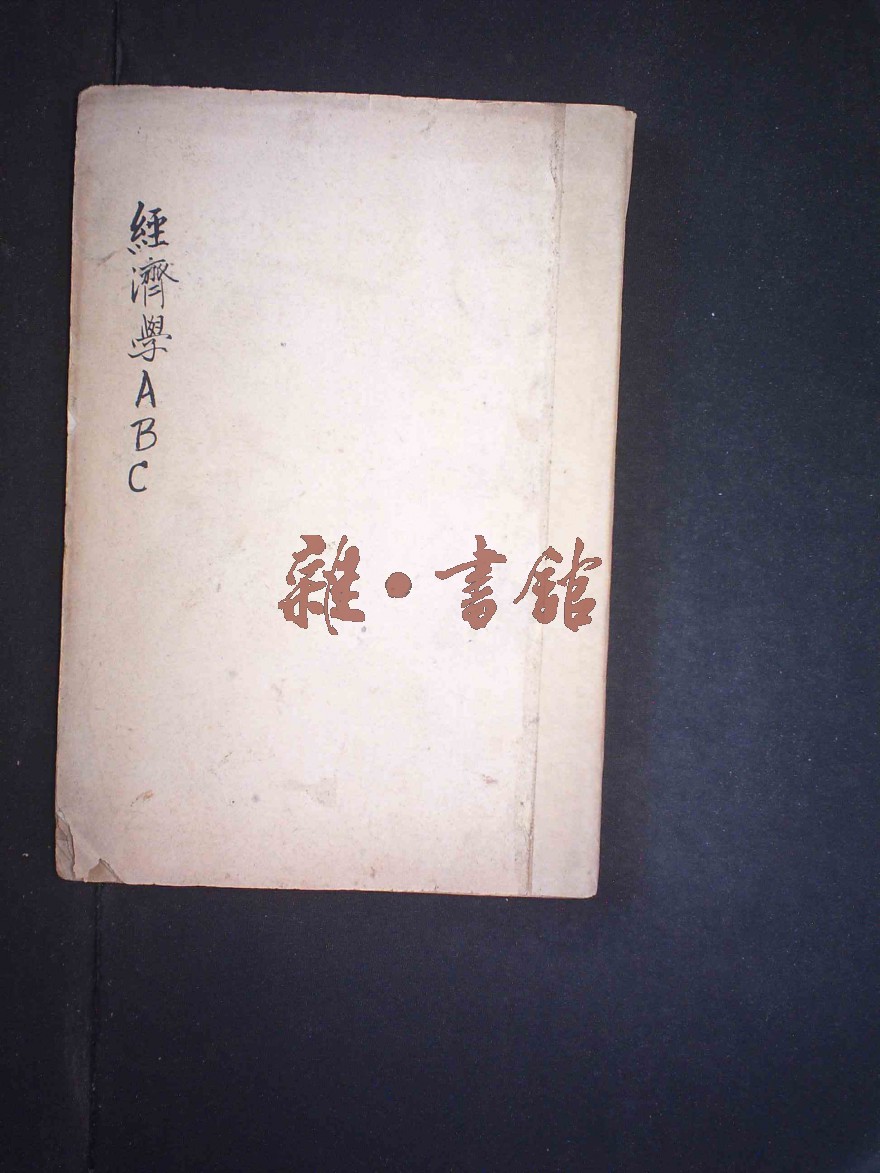 經濟學ABC
雜·書館